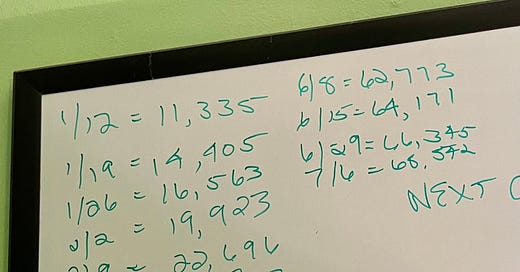 1/12 = 11,335
1/19 = 14,405
1/26 = 16,563
2/2 = 19,923
2/9 = 22,696
6/8 = 62,773
6/15 = 64,171
6/29 = 66,345
7/6 = 68,542
NEXT